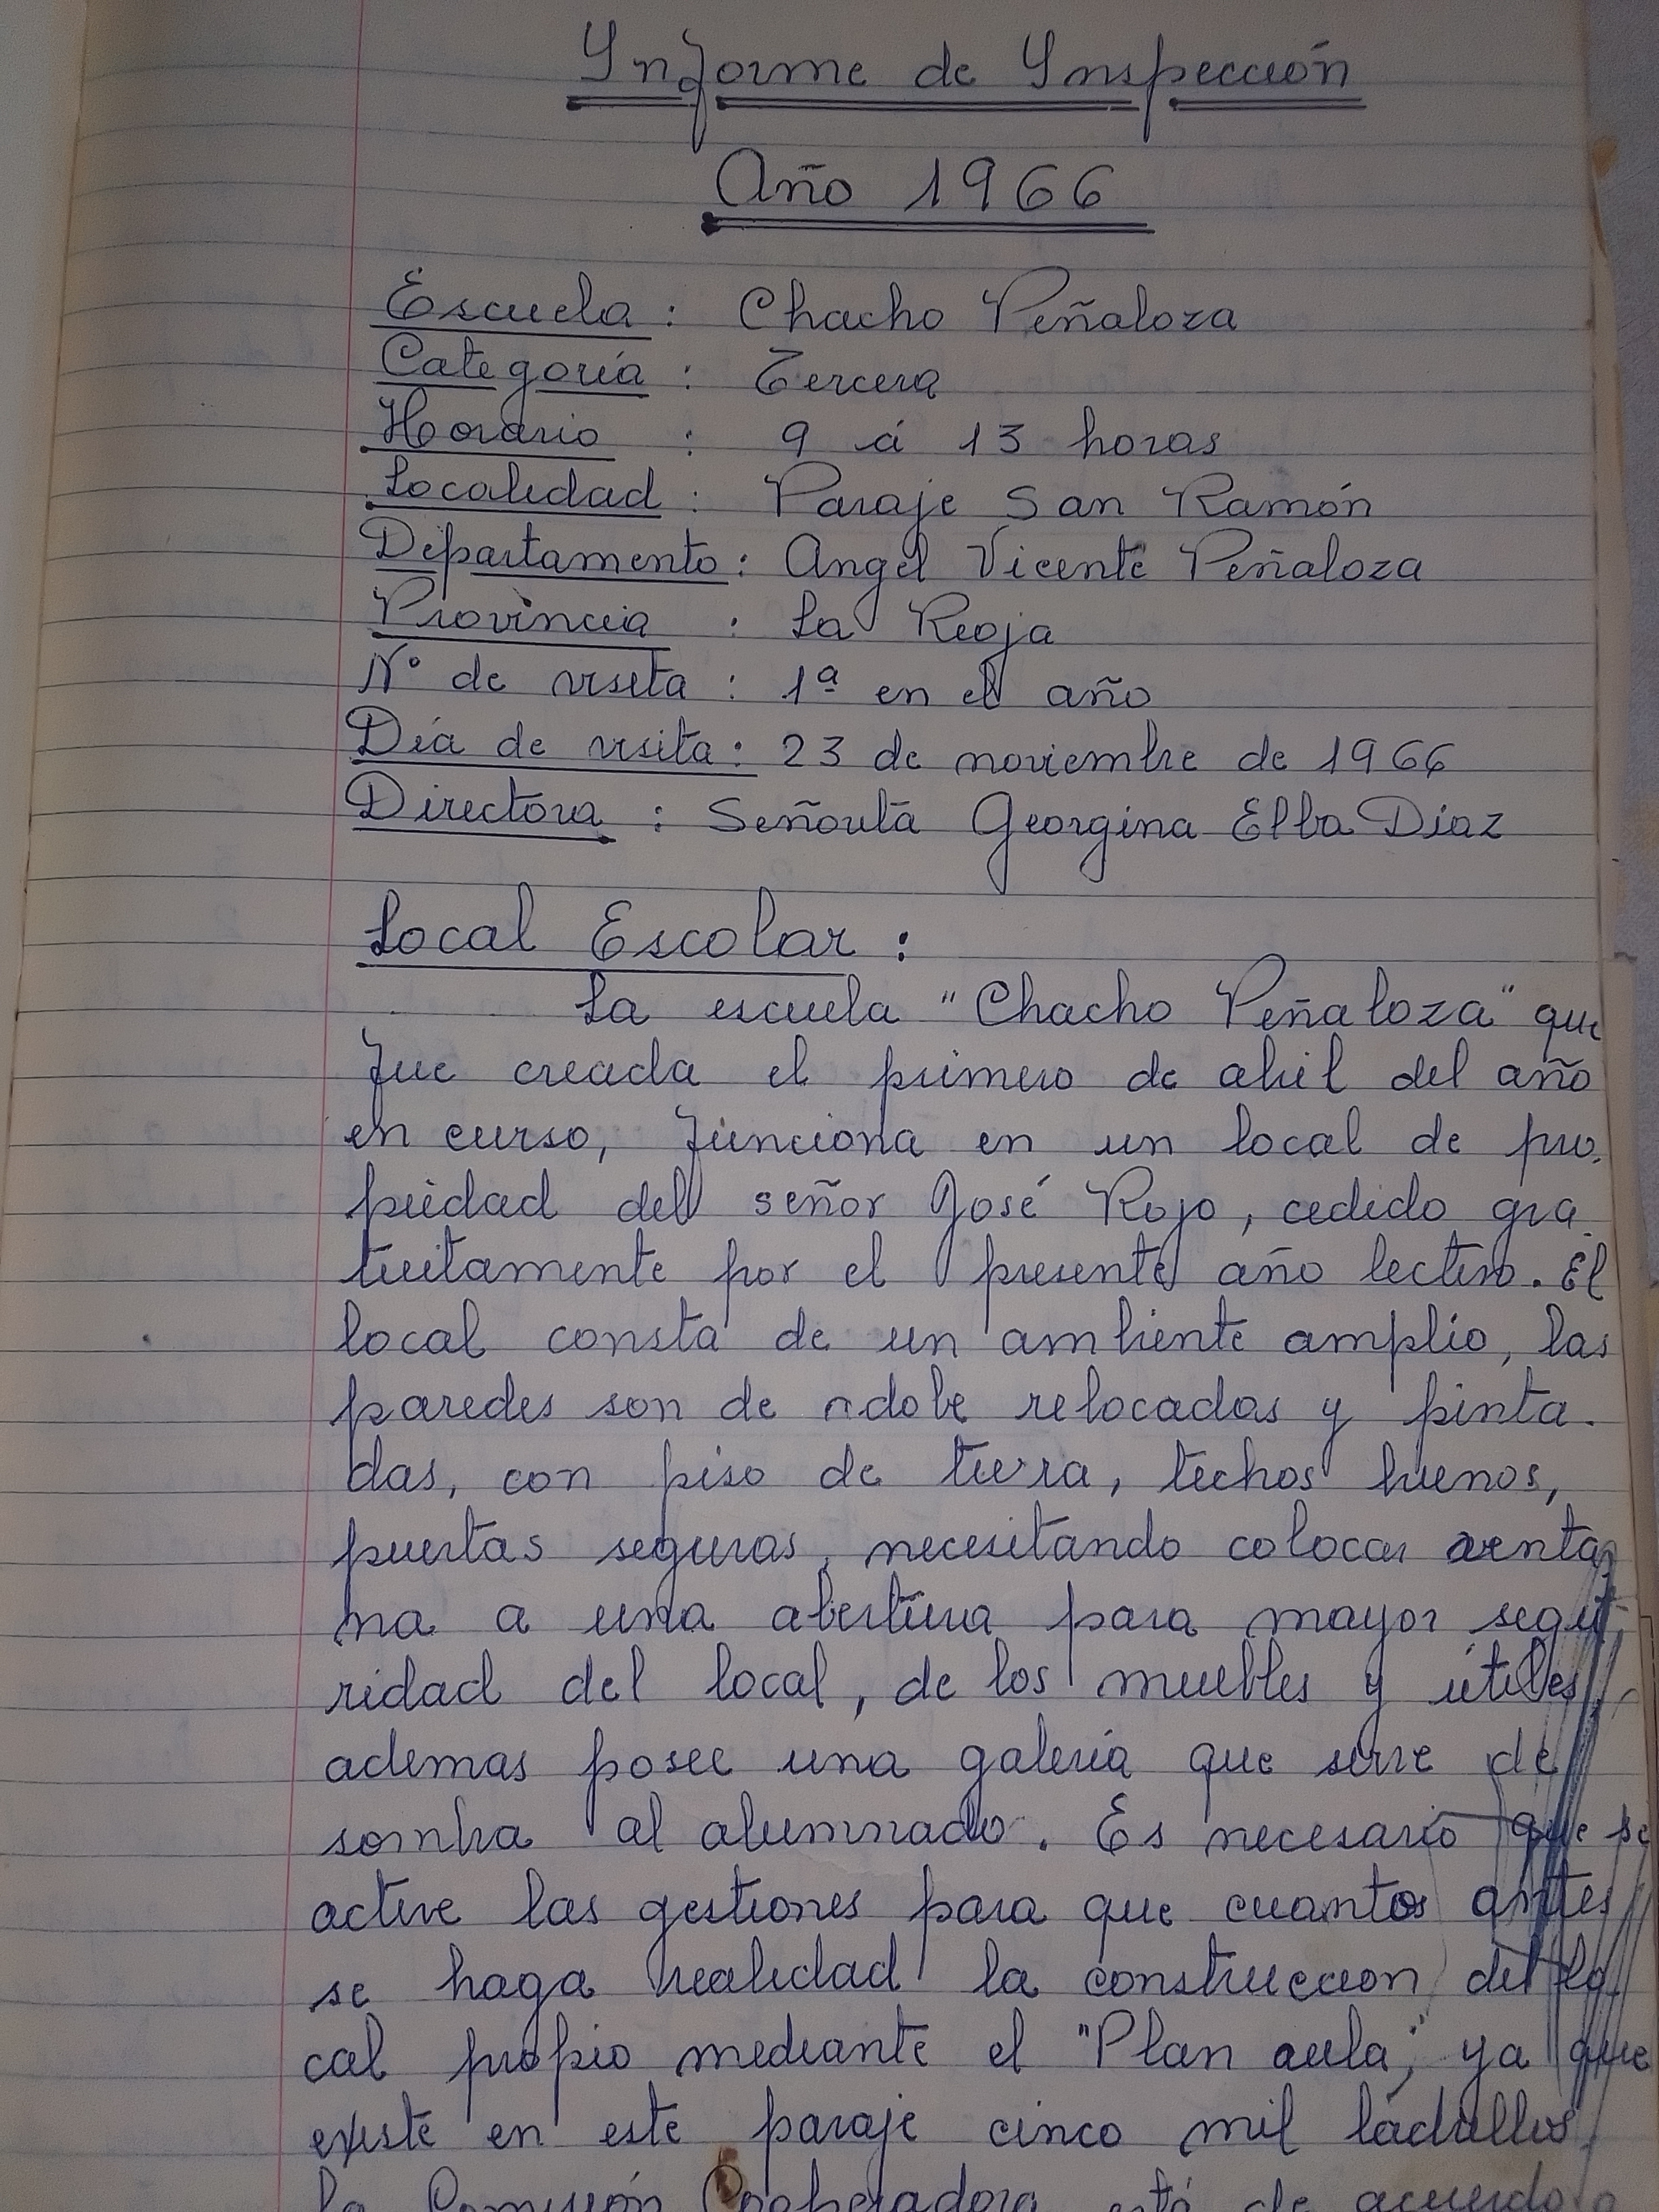 Informe de Inspección
Año 1966
Escuela : Chacho Peñaloza
Categoría : Tercera
Horario : 9 á 13 horas
Localidad : Paraje San Ramón
Departamento : Angel Vicente Peñaloza
Provincia : La Rioja
N° de visita : 1ª en el año
Día de visita : 23 de noviembre de 1966
Directora : Señorita Georgina Elba Díaz
Local Escolar :
La escuela "Chacho Peñaloza" que
fue creada el primero de abril del año
en curso, funciona en un local de pro-
piedad del señor José Rojo, cedido gra-
tuitamente por el presente año lectivo. El
local consta de un ambiente amplio, las
paredes son de adobe relocadas y pinta-
das, con piso de tierra, techos buenos,
puertas seguras, necesitando colocar venta-
na a una abertura para mayor segu-
ridad del local, de los muebles y útiles,
ademas posee una galería que sirve de
sombra al alumnado. Es necesario que se
active las gestiones para que cuantos antes
se haga realidad la construccion del lo-
cal propio mediante el "Plan aula", ya que
existe en este paraje cinco mil ladrillos,
la Comisión Cooperadora está de acuerdo a